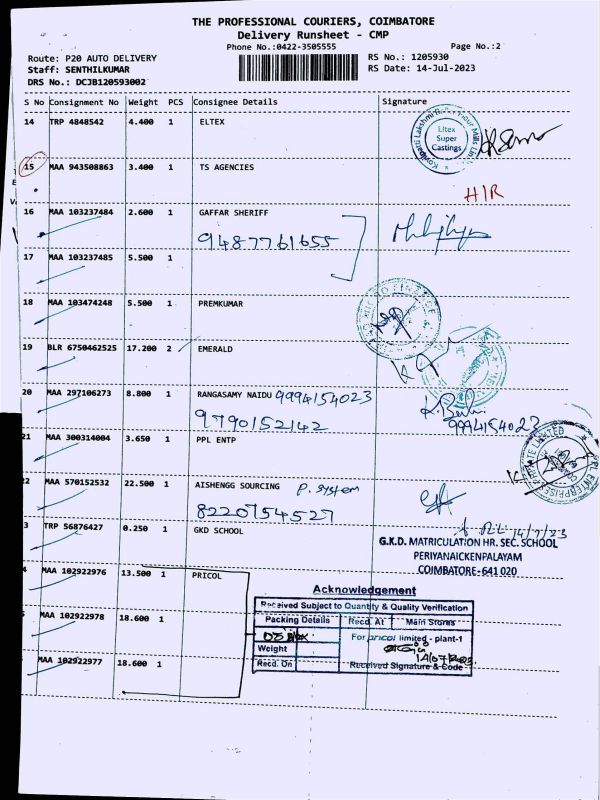 THE PROFESSIONAL COURIERS, COIMBATORE
Delivery Runsheet - CMP
Phone No.:0422-3505555 Page No.:2
Route: P20 AUTO DELIVERY RS No.: 1205930
Staff: SENTHILKUMAR RS Date: 14-Jul-2023
DRS No.: DCJB120593002
S No Consignment No Weight PCS Consignee Details Signature
14 TRP 4848542 4.400 1 ELTEX
Eltex
Super
Castings
15 MAA 943508863 3.400 1 TS AGENCIES
H/R
16 MAA 103237484 2.600 1 GAFFAR SHERIFF
9487761655
17 MAA 103237485 5.500 1
18 MAA 103474248 5.500 1 PREMKUMAR
19 BLR 6750462525 17.200 2 EMERALD
20 MAA 297106273 8.800 1 RANGASAMY NAIDU 9994154023
9790152142 9994154023
21 MAA 300314004 3.650 1 PPL ENTP
2 MAA 570152532 22.500 1 AISHENGG SOURCING P. System
8220754527
3 TRP 56876427 0.250 1 GKD SCHOOL
14/7/23
G.K.D. MATRICULATION HR. SEC. SCHOOL
PERIYANAICKENPALAYAM
COIMBATORE-641 020
MAA 102922976 13.500 1 PRICOL
Acknowledgement
Received Subject to Quantity & Quality Verification
MAA 102922978 18.600 1
Packing Details Recd. At Main Stores
For pricol limited - plant-1
Weight
14/07/2023
MAA 102922977 18.600 1
Recd. On Received Signature & Code